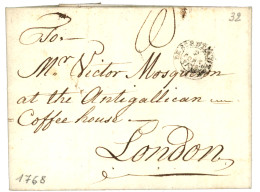 32
To
Mr Victor Mosqueron
at the Antigallican
Coffee house
London
1768